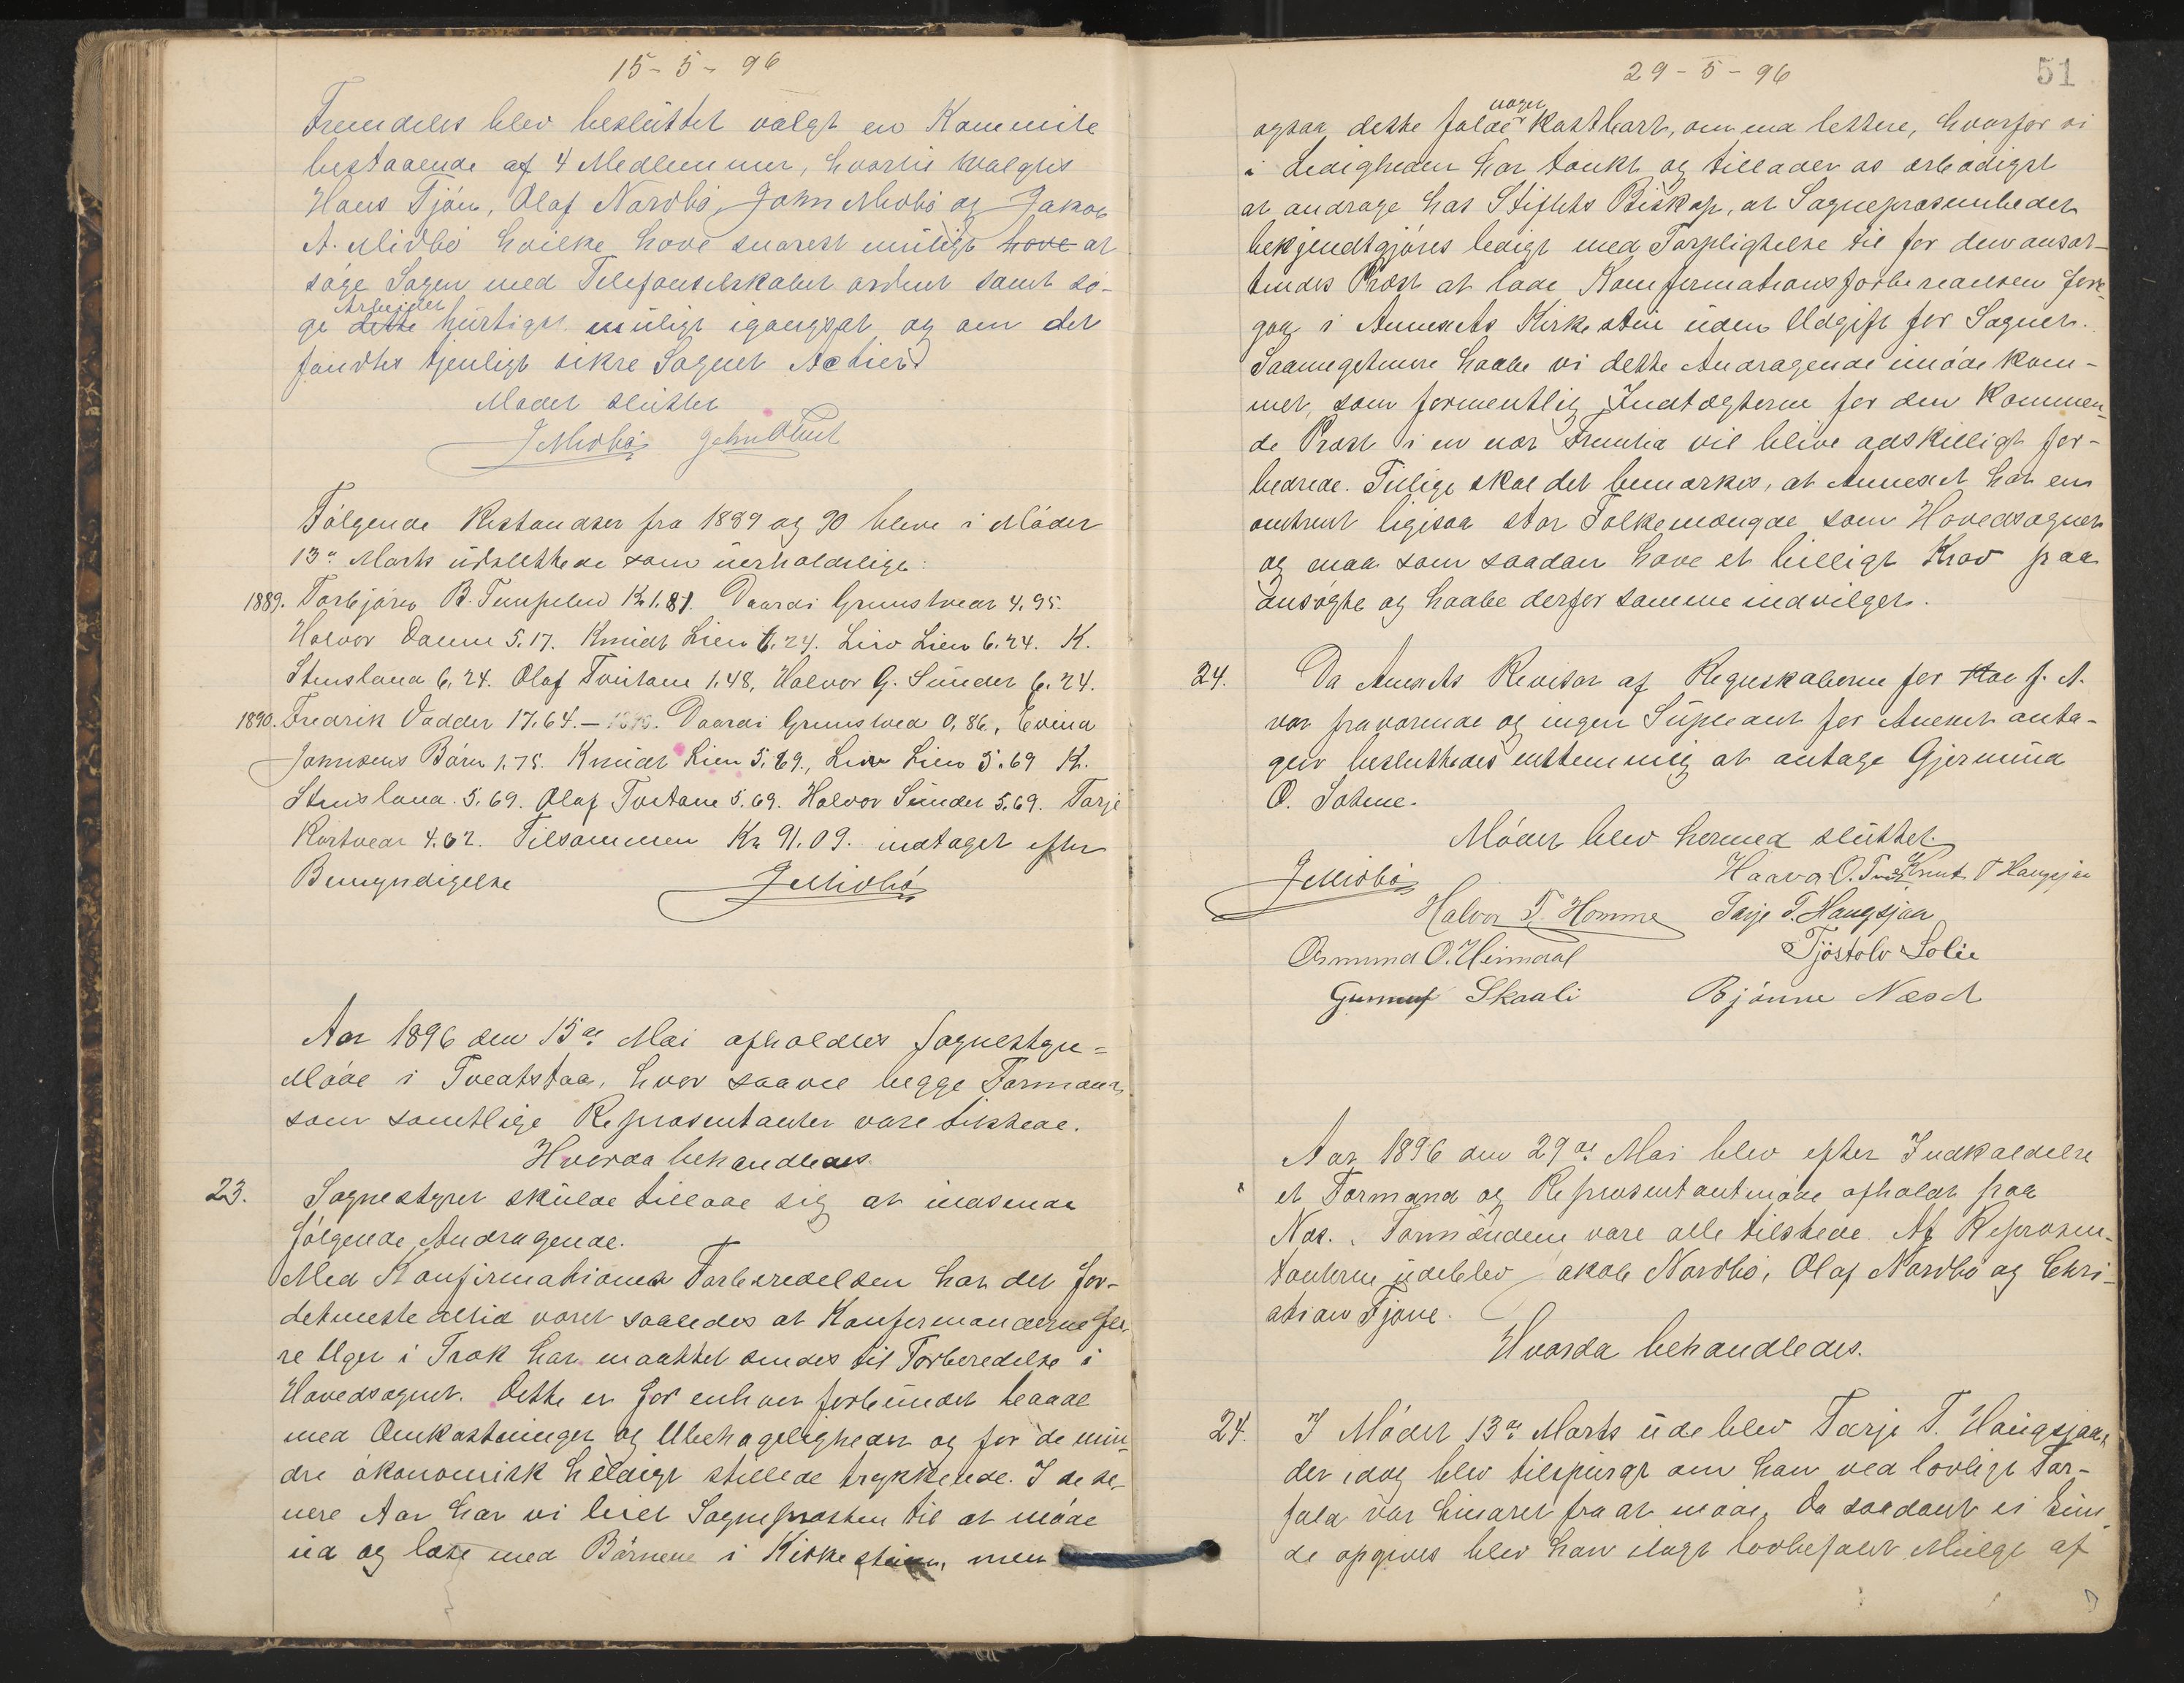 15-5-96
Fremdeles blev besluttet valgt en Kommite
bestaaende af 4 Medlemmer, hvortil valgtes
Hans Tjón, Olaf Nordbó, John Midbó og Jakob
A. Midbó hvilke have snarest muligt have at
sóge Sagen med Telefonselskabet ordnet samt só-
ge dette Arbejdet hurtigst muligt igangsat og om det
fandtes tjenligt sikre Sognet Actier
Módet sluttet
J Midbó
Fólgende Restandser fra 1889 og 90 bleve i Módet
13de Marts udslettede som uerholdelige:
1889. Torbjórn B. Tempelen K 1.81. Daardi Grimstvedt 4,95.
Halvor Dalene 5.17. Knudt Lien 6.24. Liv Lien 6.24. K.
Stensland 6,24. Olaf Tveitane 1.48, Halvor G. Sunder 6.24.
1890. Fredrik Vadder 17.64.— Daardi Grimstved 0,86, Evind
Johnsens Bórn 1.75. Knudt Lien 5.69., Liv Lien 5.69 K.
Stensland. 5.69. Olaf Tveitane 5.69. Halvor Sunder 5.69. Tarje
Kostvedt 4.62. Tilsammen Kr 91.09. indtaget efter
Bemyndigelse J Midbó
Aar 1896 den 15de Mai afholdtes Sognestyre=
Móde i Tveatstaa, hvor saavel begge Formænd
som samtlige Repræsentanter vare tilstede.
Hvorda behandledes.
23. Sognestyret skulde tillade sig at indsende
fólgende Andragende.
Med Konfirmations Forberedelsen har det for-
detmeste altid været saaledes at Konfirmanderne fle-
re Uger i Træk har maattet sendes til Forberedelse i
Hovedsognet. Dette er for enhver forbundet baade
med Omkostninger og Ubehageligheder og for de min-
dre ókonomisk heldigt stillede trykkende. I de se-
nere Aar har vi leiet Sognepræsten til at móde
ud og læse med Bórnene i Kirkestuen, men
29-5-96
51
ogsaa dette falder noget kostbart, om end lettere, hvorfor vi
i Ledigheden har tænkt og tillader os ærbódigst
at andrage hos Stiftets Biskop, at Sognepræstembedet
bekjendtgjóres ledigt med Forpligtelse til for den ansæt-
tendes Præst at lade Konfermationsforberedelsen fore-
gaa i Annexets Kirkestue uden Udgift for Sognet.
Saameget mere haabe vi dette Andragende imódekom-
met, som formentlig Indtægterne for den kommen-
de Præst i en nær Fremtid vil blive adskilligt for-
bedrede. Tillige skal det bemærkes, at Annexet har en
omtrent ligesaa stor Folkemængde som Hovedsognet
og maa som saadan have et billigt Krav paa
ansógte og haabe derfor samme indvilget.
24. Da Anexets Revisor af Regnskaberne for f. A.
var fraværende og ingen Supleant for Anexet anta-
get besluttedes enstemmig at antage Gjermund
O. Sotene.
Módet blev hermed sluttet.
J Midbó Haavor O. Knut T Haugsjaa
Halvor T. Homme Tarje T. Haugsjaa
Osmund O. Heimdal Tjóstolv Solie
Gunnuf Skaali Bjónne Næset
Aar 1896 den 29de Mai blev efter Indkaldelse
et Formand og Repræsentantmóde afholdt paa
Næs. Formændene vare alle tilstede. Af Repræsen-
tanterne udeblev Jakob Nordbó, Olaf Nordbó og Chri-
stian Tjóne.
Hvorda behandledes.
24. I Módet 13de Marts udeblev Tarje T. Haugsjaa,
der idag blev tilspurgt om han ved lovligt For-
fald var hindret fra at móde, Da saadant ei kun-
de opgives blev han ilagt lovbefalet Mulgt af